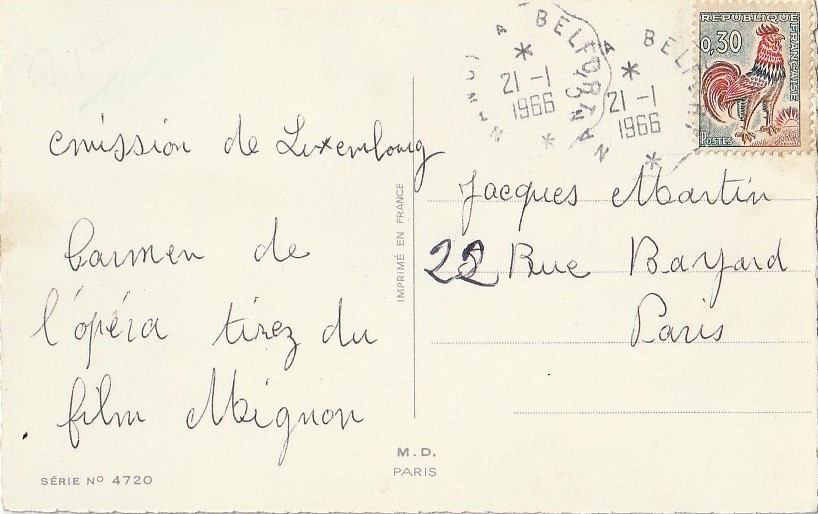 émission de Luxembourg
Carmen de
l'opéra tirez du
film Mignon
SÉRIE Nº 4720
IMPRIMÉ EN FRANCE
M.D.
PARIS
BELFORT A NANCY
21-1
1966
BELF
21-1
1966
RÉPUBLIQUE FRANÇAISE
0,30
POSTES
Jacques Martin
22 Rue Bayard
Paris